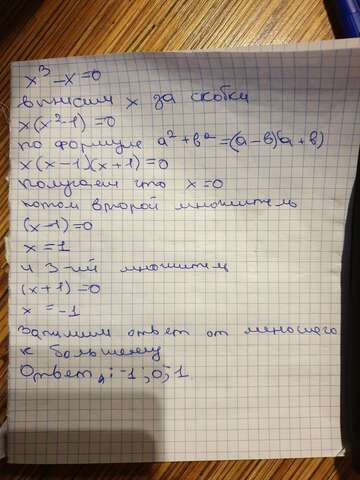 x³ - x = 0
выносим x за скобки
x(x²-1) = 0
по формуле a²+b²=(a-b)(a+b)
x(x-1)(x+1)=0
получаем что x=0
потом второй множитель
(x-1)=0
x = 1
и 3-ий множитель
(x+1)=0
x = -1
запишим ответ от меньшего
к большему
Ответ: -1; 0; 1